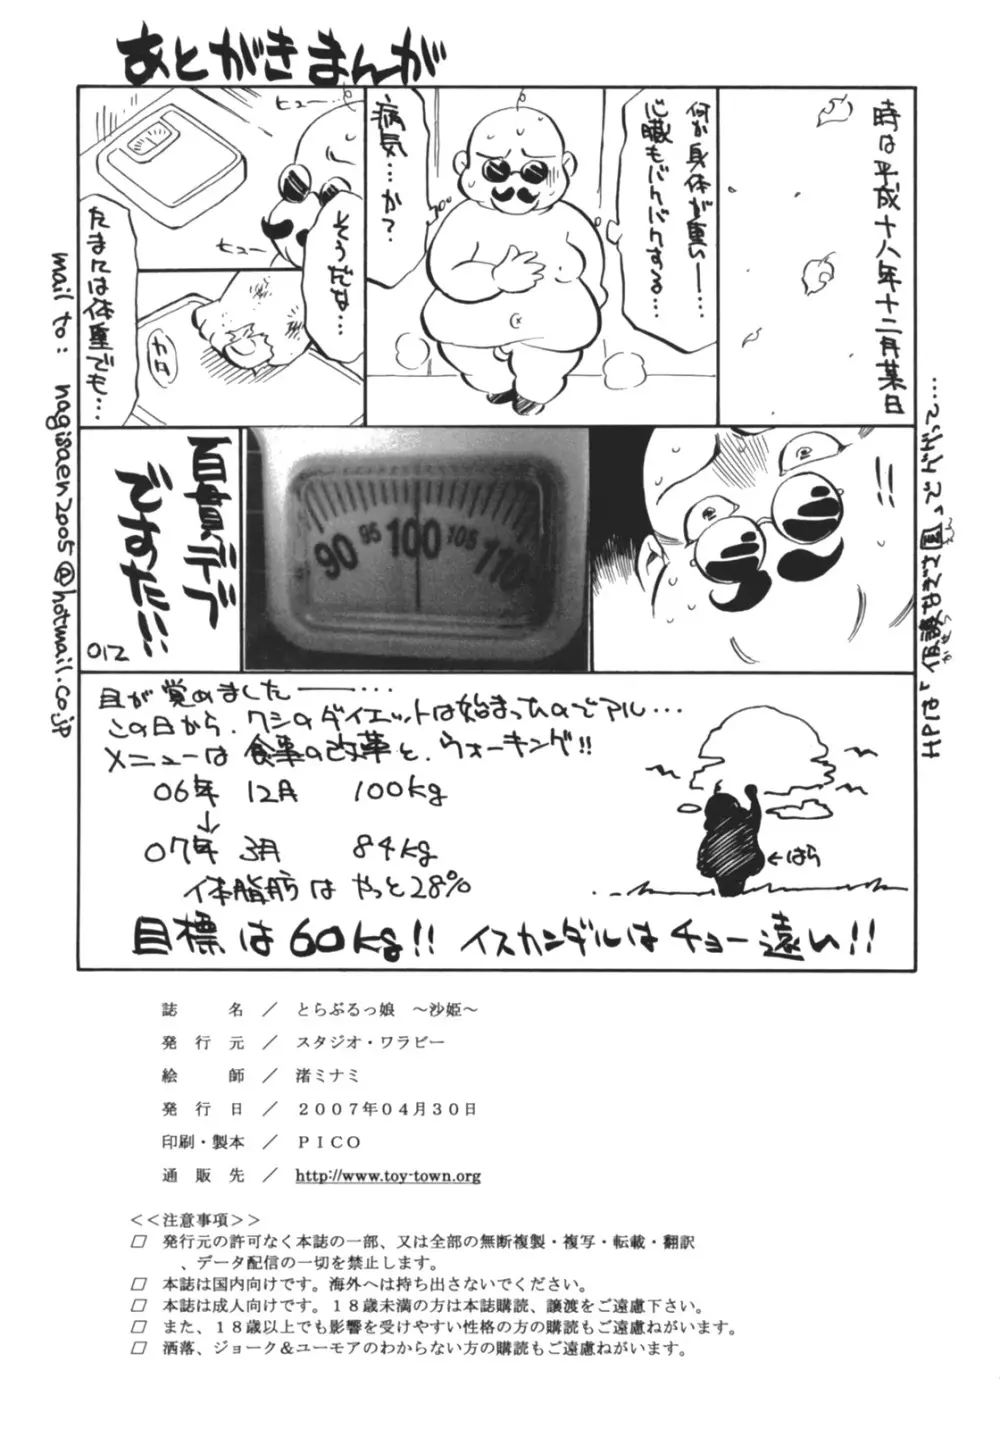 あとがきまんが
時は平成十八年十二月某日
何か身体が重い──…
心臓もバクバクする…
病気…か?
ヒュー…
ヒュー
そうだな…
たまには体重でも…
カタ
!!
90 95 100 105 110
百貫デブ
ですた!!!
012
目が覚めました──…
この日から、ワシのダイエットは始まったのでアル…
メニューは食事の改革と、ウォーキング!!
06年 12月 100kg
↓
07年 3月 84kg
体脂肪は やっと28%
←はら
目標は60kg!! イスカンダルはチョー遠い!!
mail to: nagisaen2005@hotmail.co.jp
誌 名 / とらぶるっ娘 ～沙姫～
発 行 元 / スタジオ・ワラビー
絵 師 / 渚ミナミ
発 行 日 / 2007年04月30日
印刷・製本 / PICO
通 販 先 / http://www.toy-town.org
<<注意事項>>
□ 発行元の許可なく本誌の一部、又は全部の無断複製・複写・転載・翻訳
、データ配信の一切を禁止します。
□ 本誌は国内向けです。海外へは持ち出さないでください。
□ 本誌は成人向けです。18歳未満の方は本誌購読、譲渡をご遠慮下さい。
□ また、18歳以上でも影響を受けやすい性格の方の購読もご遠慮ねがいます。
□ 洒落、ジョーク&ユーモアのわからない方の購読もご遠慮ねがいます。